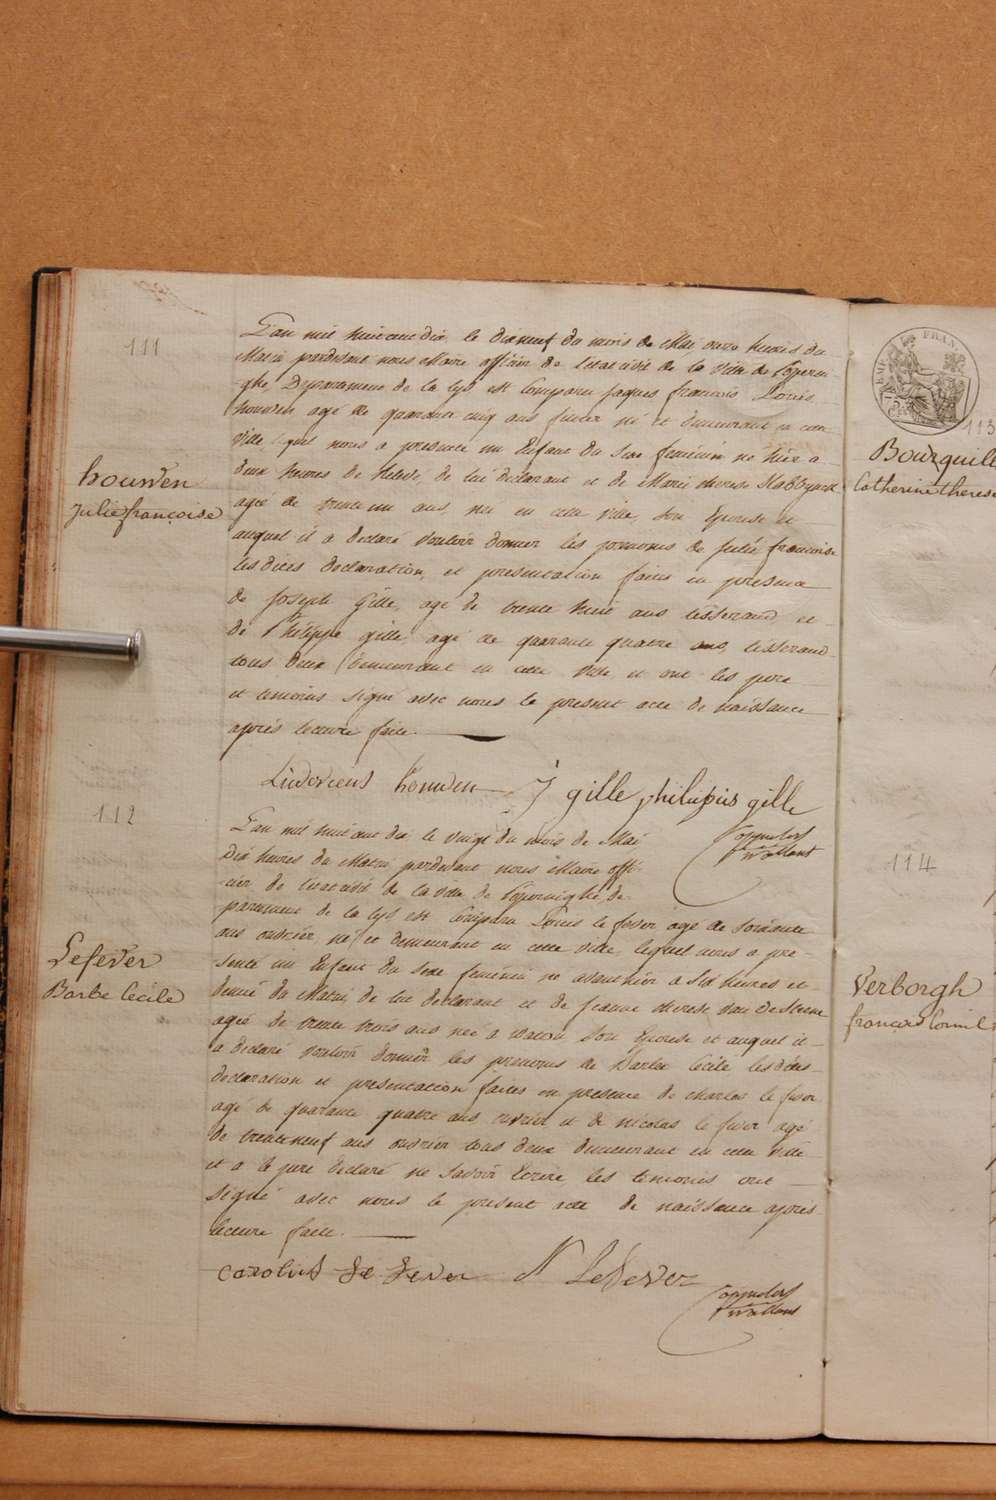 111
L'an mil huit cent dix le dixneuf du mois de Mai onze heures du
Matin pardevant nous Maire officier de l'etat civil de la ville de Poperin-
-ghe Departement de la Lys est Comparu Jaques francois Louis
houwen agé de quarante cinq ans né et demeurant en cette
ville lequel nous a presenté un Enfant du Sexe feminin né hier a
deux heures de relevé, de lui declarant et de Marie therese
agée de trente un ans, née en cette ville, Son Epouse et
auquel il a declaré vouloir donner les prenoms de Julie francoise
les dites declaration, et presentation faites en presence
de Joseph Gille, agé de trente huit ans tisserand, et
de Philippe gille agé de quarante quatre ans, tisserand
tous deux Demeurant en cette ville, et ont les pere
et temoins signé avec nous le present acte de naissance
aprés lecture faite.
houwen
Julie françoise
Ludovicus houwen J gille philippus gille
112
L'an mil huit cent dix le vingt du mois de Mai
Dix heures du Matin pardevant nous Maire offi-
-cier de l'etat civil de la ville de Poperinghe, de-
partement de la Lys est Comparu Louis le fever agé de soixante
ans ouvrier, né et demeurant en cette ville, lequel nous a pre-
-senté un Enfant du Sexe feminin né avant hier a Six heures et
demie du Matin, de lui declarant et de Jeanne therese
agée de trente trois ans née a watou Son Epouse et auquel il
a declaré vouloir donner les prenoms de Barbe Cécile les dites
declaration et presentation faites en presence de charles le fever
agé de quarante quatre ans ouvrier et de nicolas le fever agé
de trenteneuf ans ouvrier tous deux demeurant en cette ville
et a le pere declaré ne savoir Ecrire les temoins ont
signé avec nous le present acte de naissance aprés
lecture faite.
Lefever
Barbe Cecile
Carolus Le Fever N Lefever
FRAN
113
Bourquill
Catherine therese
114
Verborgh
françois Cornil